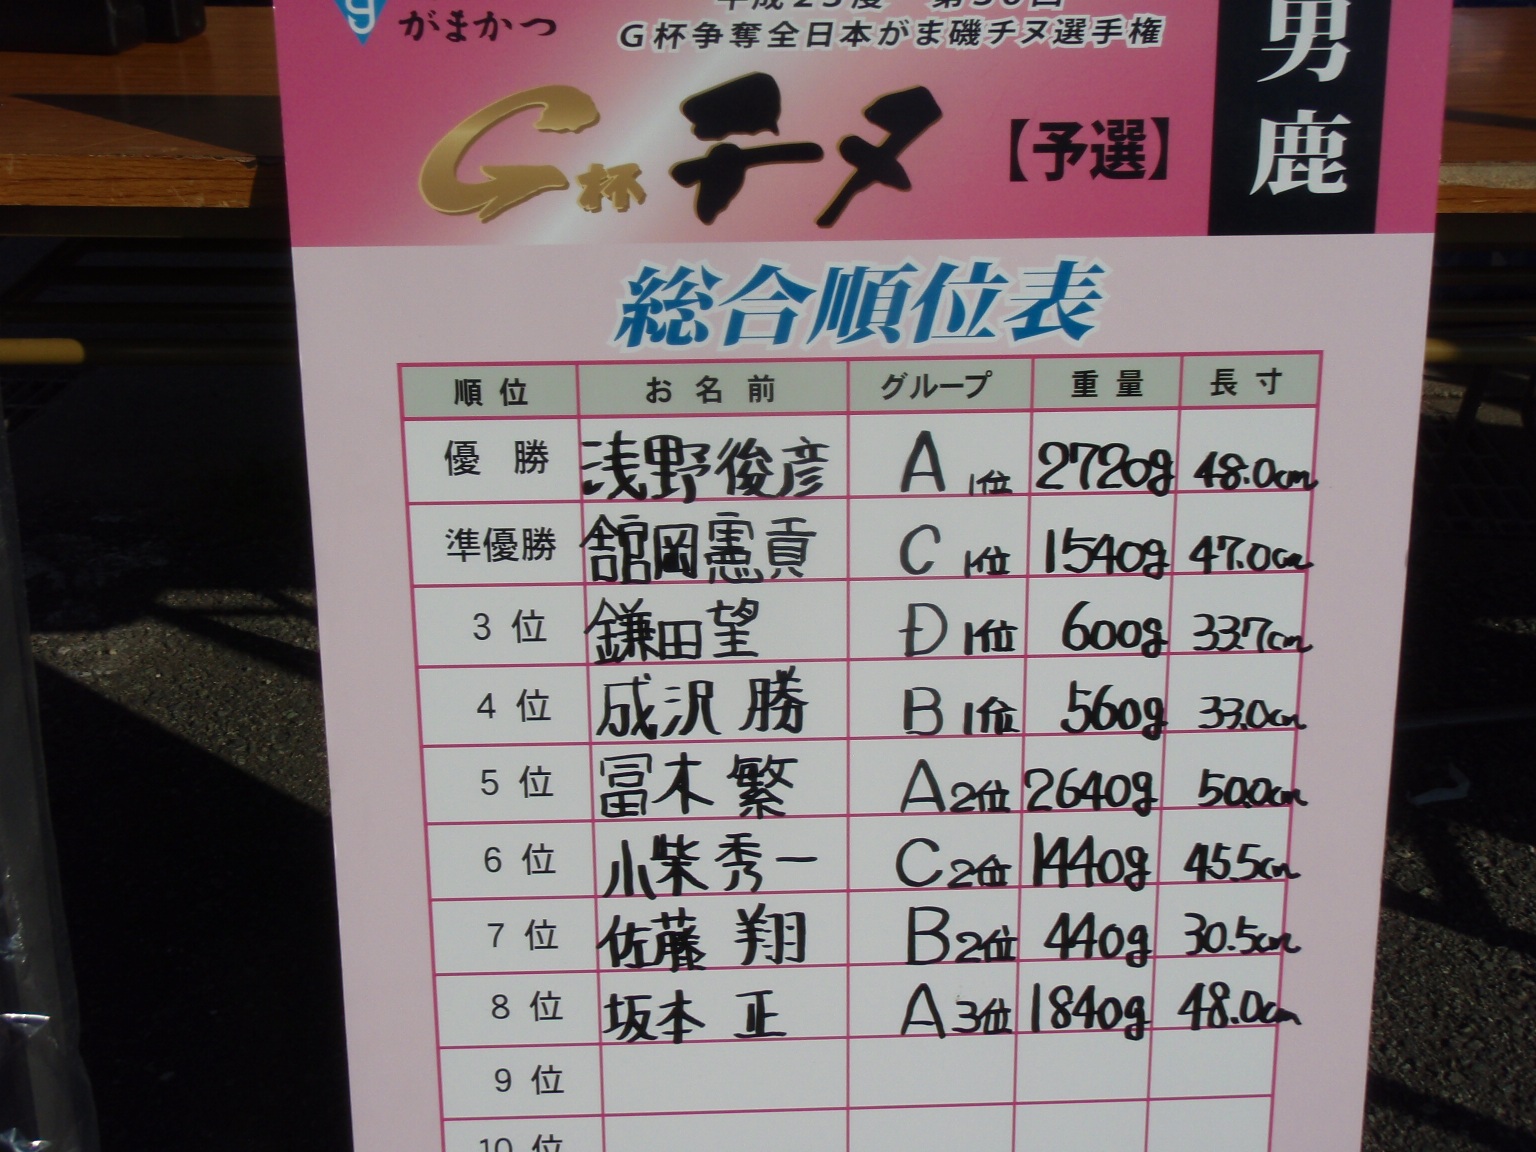 がまかつ
平成25度 第30回
G杯争奪全日本がま磯チヌ選手権
G杯チヌ 【予選】
男鹿
総合順位表
順位 お名前 グループ 重量 長寸
優勝 浅野俊彦 A 1位 2720g 48.0cm
準優勝 舘岡憲貢 C 1位 1540g 47.0cm
3位 鎌田望 D 1位 600g 33.7cm
4位 成沢 勝 B 1位 560g 33.0cm
5位 冨木 繁 A 2位 2640g 50.0cm
6位 小柴秀一 C 2位 1440g 45.5cm
7位 佐藤 翔 B 2位 440g 30.5cm
8位 坂本 正 A 3位 1840g 48.0cm
9位
10位